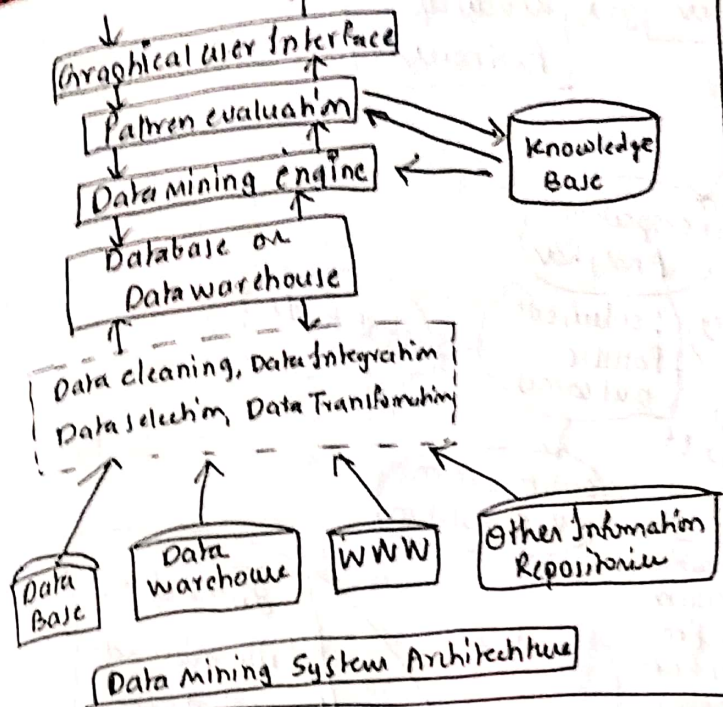 Graphical user Interface
Pattren evaluation
Knowledge
Base
Data mining engine
Database or
Data warehouse
Data cleaning, Data Integration
Data selection, Data Transfomation
Data
Base
Data
warehouse
WWW
Other Information
Repositories
Data mining System Architechture